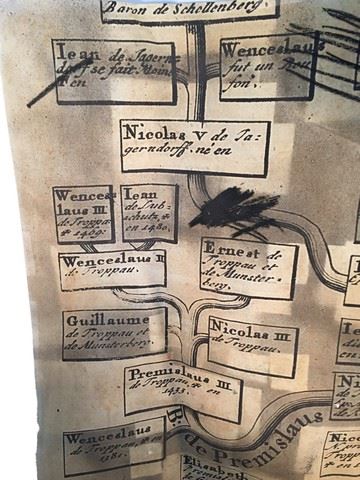 Baron de Schellenberg.
Iean de Jagern-
dorff se fait
en
Wenceslaus
fut un
fon.
Nicolas V de Ja-
gerndorff. né en
Wences
laus III
de Troppau
† 1469.
Iean
de Lub-
schutz, †
en 1480.
Wenceslaus II
de Troppau.
Ernest de
Troppau et
de Munster-
berg.
Guillaume
de Troppau et
de Munsterberg.
Nicolas III
de Troppau.
Premislaus III
de Troppau, † en
1433.
Wenceslaus
de Troppau, † en
1381.
B. de Premislaus
Elisabeth